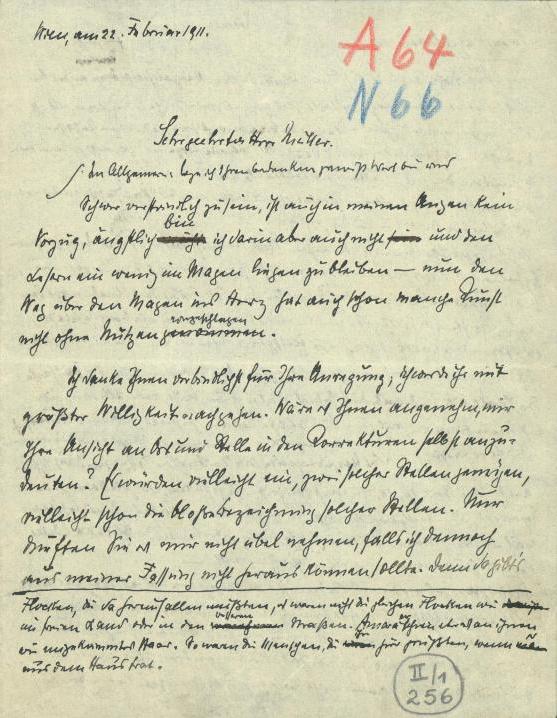 Wien, am 22. Februar 1911.
A 64
N 66
Sehrgeehrter Herr Müller.
Im Allgemeinen: lege ich Ihren Bedenken gewiß Wert bei und
Schwer verständlich zu sein, ist auch in meinen Augen kein
bin
Vorzug; ängstlich ich darin aber auch nicht und den
Lesern ein wenig im Magen liegen zu bleiben – nun den
Weg über den Magen ins Herz hat auch schon manche Kunst
eingeschlagen
nicht ohne Nutzen genommen.
Ich danke Ihnen verbindlichst für Ihre Anregung; ich werde ihr mit
größter Willigkeit nachgehen. Wäre es Ihnen angenehm, mir
Ihre Ansicht an Ort und Stelle in den Korrekturen selbst anzu-
deuten? Es würden vielleicht ein, zwei solcher Stellen genügen,
vielleicht schon die bloße Bezeichnung solcher Stellen. Nur
dürften Sie es mir nicht übel nehmen, falls ich dennoch
aus meiner Fassung nicht heraus können sollte. Denn da gibts
Flocken, die da herausfallen müßten, es waren nicht die gleichen Flocken wie
im freien Land oder in den Straßen. etwas an ihnen
wie ungekämmtes Haar. So waren die Menschen, die grüßten, wenn
aus dem Haus trat.
II/1
256